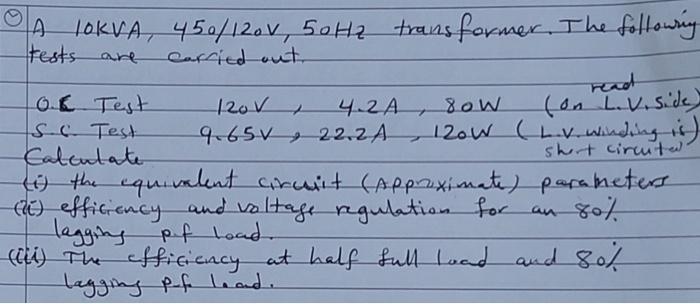 A 10KVA, 450/120V, 50Hz transformer. The following
tests are carried out.
O.C. Test 120V, 4.2A, 80W (on read L.V. side)
S.C. Test 9.65V, 22.2A, 120W (L.V. winding is short circuited)
Calculate
(i) the equivalent circuit (Approximate) parameters
(ii) efficiency and voltage regulation for an 80%
lagging p.f load.
(iii) The efficiency at half full load and 80%
lagging p.f. load.